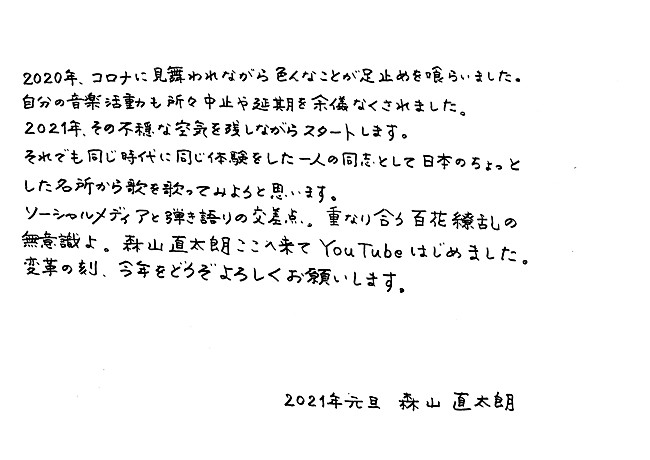 2020年、コロナに見舞われながら色んなことが足止めを喰らいました。
自分の音楽活動も所々中止や延期を余儀なくされました。
2021年、その不穏な空気を残しながらスタートします。
それでも同じ時代に同じ体験をした一人の同志として日本のちょっと
した名所から歌を歌ってみようと思います。
ソーシャルメディアと弾き語りの交差点。重なり合う百花繚乱の
無意識よ。森山直太朗ここへ来てYouTubeはじめました。
変革の刻、今年をどうぞよろしくお願いします。
2021年元旦 森山 直太朗